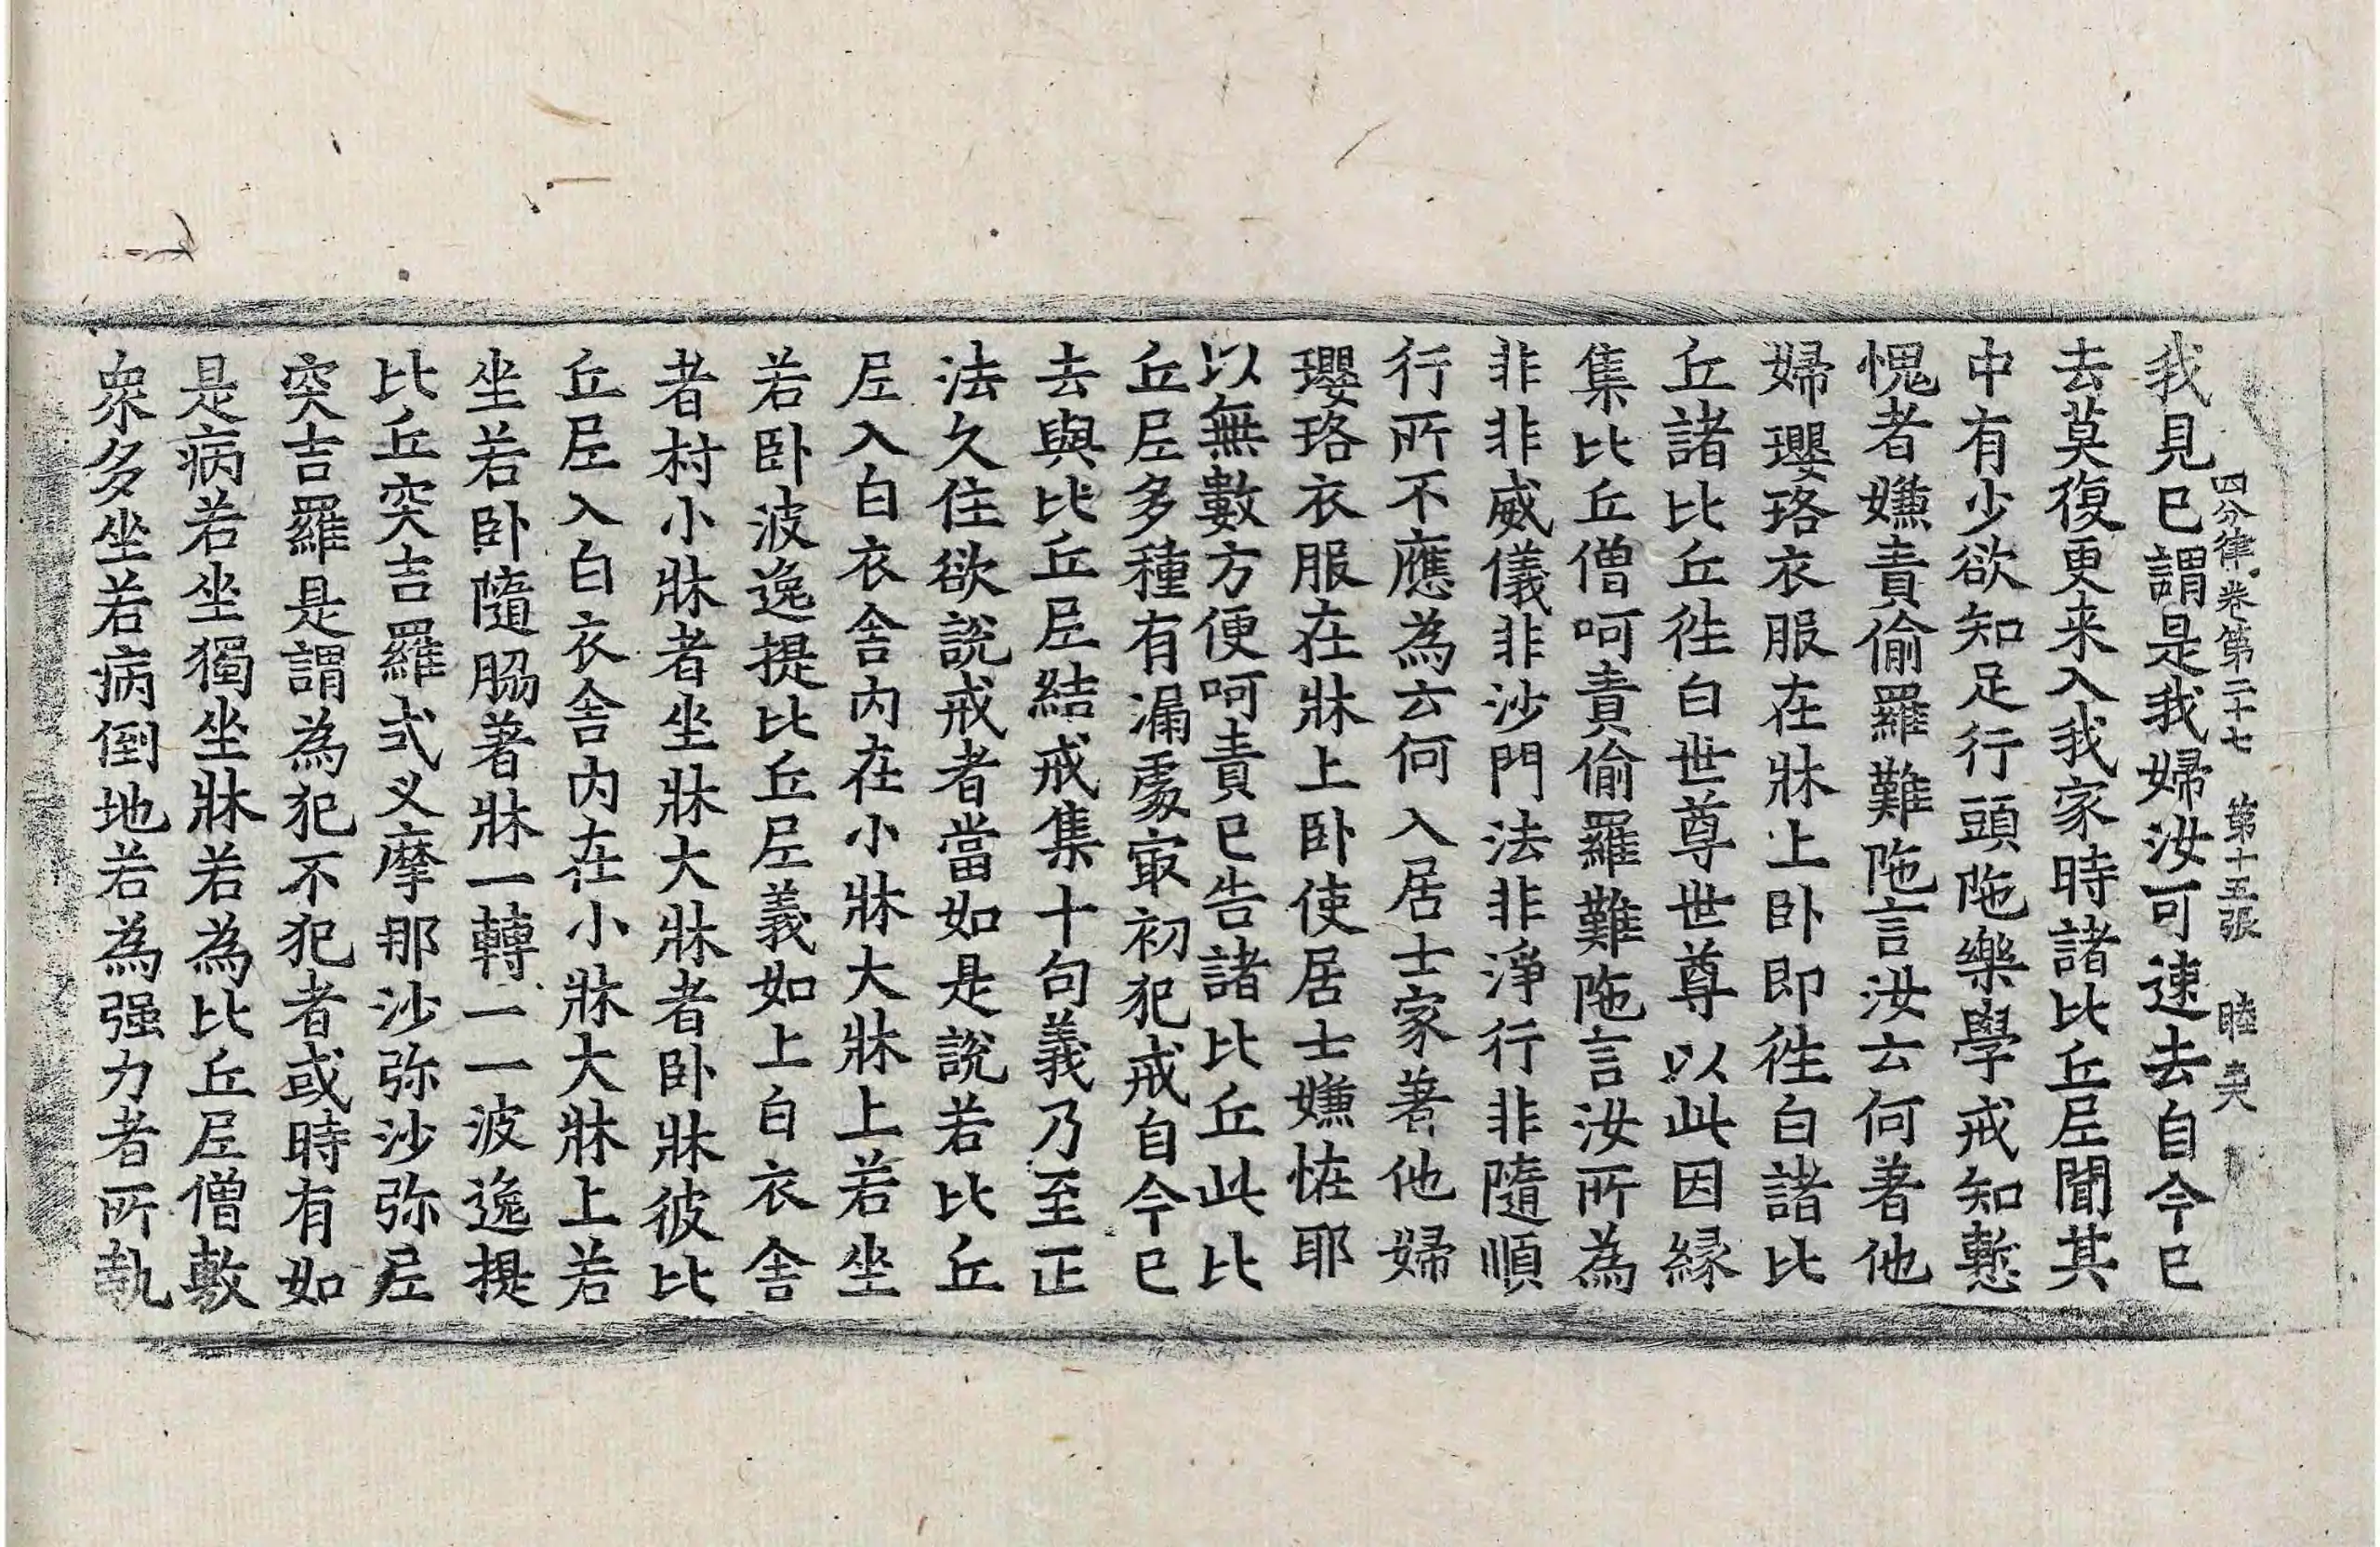 四分律卷第二十七 第十五張 睦
我見已謂是我婦汝可速去自今已
去莫復更来入我家時諸比丘尼聞其
中有少欲知足行頭陁樂學戒知慙
愧者嫌責偷羅難陁言汝云何著他
婦瓔珞衣服在牀上卧即徃白諸比
丘諸比丘徃白世尊世尊以此因緣
集比丘僧呵責偷羅難陁言汝所為
非非威儀非沙門法非淨行非隨順
行所不應為云何入居士家著他婦
瓔珞衣服在牀上卧使居士嫌恠耶
以無數方便呵責已告諸比丘此比
丘尼多種有漏處冣初犯戒自今已
去與比丘尼結戒集十句義乃至正
法久住欲說戒者當如是說若比丘
尼入白衣舍内在小牀大牀上若坐
若卧波逸提比丘尼義如上白衣舍
者村小牀者坐牀大牀者卧牀彼比
丘尼入白衣舍内在小牀大牀上若
坐若卧隨脇著牀一轉一一波逸提
比丘突吉羅式叉摩那沙弥沙弥尼
突吉羅是謂為犯不犯者或時有如
是病若坐獨坐牀若為比丘尼僧敷
衆多坐若病倒地若為强力者所執